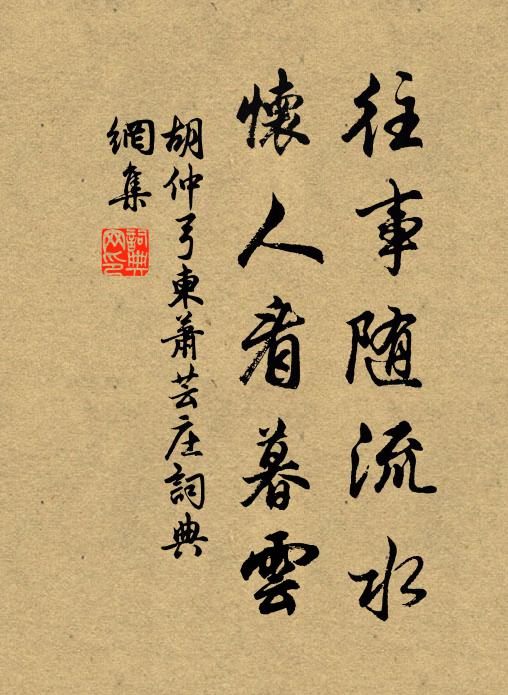 往事随流水
懷人看暮雲
胡仲弓東萧芸庄詞典
網集
詞典
网印